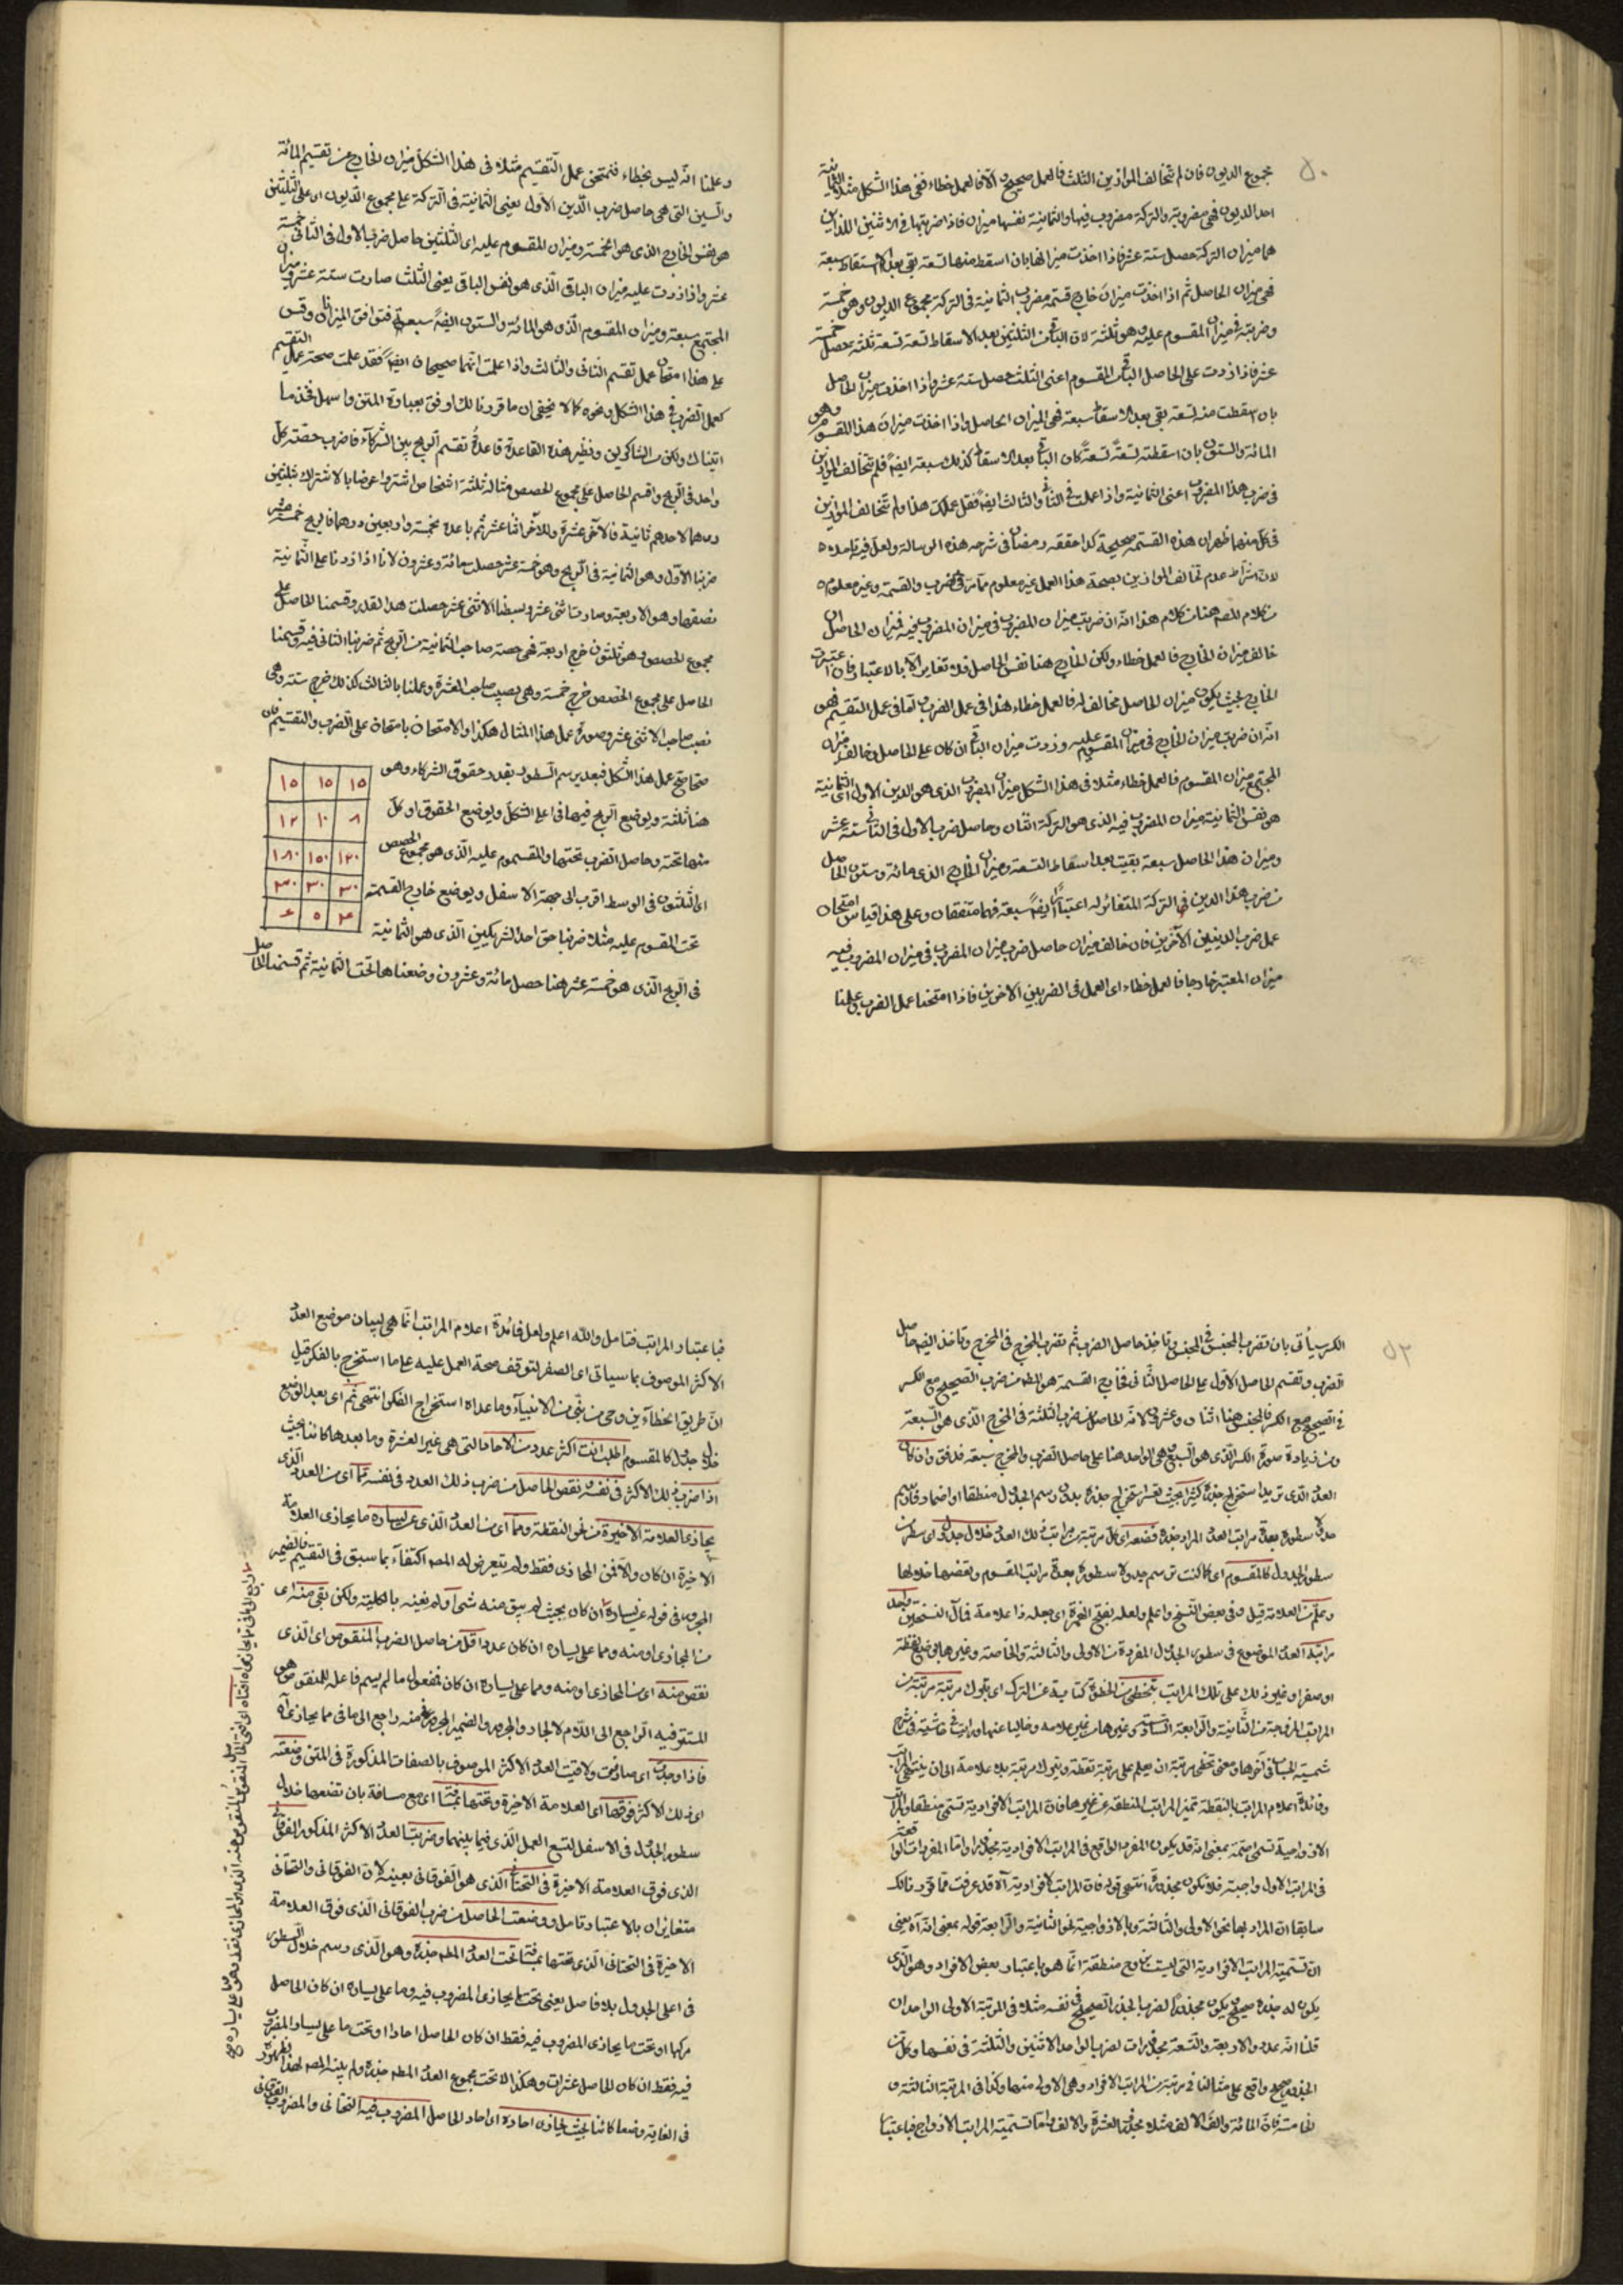 ٥٠
مجموع الديون فان لم تخالف الموازين الثلث فالعمل صحيح والا فالعمل خطاء ففى هذا الشكل مثلا الثمانية
احد الديون فهى مضروبة والتركة مضروب فيها والثمانية نفسها ميزان فاذا ضربتها فى الاثنين اللذين
هما ميزان التركة حصل ستة عشر فاذا اخذت ميزانها بان اسقط منها تسعة بقى بعد الاسقاط سبعة
فهى ميزان الحاصل ثم اذا اخذت ميزان خارج قسمة مضروب الثمانية فى التركة مجموع الديون وهو خمسة
وضربته فى ميزان المقسوم عليه وهو ثلثة لان الباقى من الثلثين بعد الاسقاط تسعة تسعة ثلثة يحصل خمسة
عشر فاذا زدت على الحاصل الباقى المقسوم اعنى الثلث حصل ستة عشر واذا اخذت ميزان الحاصل
بان اسقطت منه تسعة بقى بعد الاسقاط سبعة فهى الميزان الحاصل واذا اخذت ميزان هذا المقسوم وهو
المائة والستون بان اسقطته تسعة تسعة كان الباقى بعد الاسقاط كذلك سبعة ايضا فلم تتخالف الموازين
فى ضرب هذا المضروب اعنى الثمانية واذا عملت فى الثانى والثالث ايضا فقل عملك هذا ولم تتخالف الموازين
فى كل منهما ظهر ان هذه القسمة صحيحة كذا حققه رمضان فى شرحه هذه الرسالة ولعل فيه ما فيه
لان اشتراط عدم تخالف الموازين بصحة هذا العمل غير معلوم مما مر فى ضرب والقسمة وغير معلوم
من كلام المص هنا من كلام هذا انه ان ضربت ميزان المضروب فى ميزان المضروب فيه فميزان الحاصل ان
خالف ميزان الخارج فالعمل خطاء ولكن الخارج هنا نفس الحاصل فلا تغاير الا بالاعتبار فان اعتبرت
الخارج بحيث يكون ميزان الحاصل مخالف له فالعمل خطاء هذا فى عمل الضرب اما فى عمل التقسيم فهو
انه ان ضربت ميزان الخارج فى ميزان المقسوم عليه وزدت ميزان الباقى ان كان على الحاصل وخالف ميزان
المجتمع ميزان المقسوم فالعمل خطاء مثلا فى هذا الشكل ميزان المضروب الذى هو الدين الاول اى الثمانية
هو نفس الثمانية وميزان المضروب فيه الذى هو التركة اثنان وحاصل ضرب الاول فى الثانى ستة عشر
وميزان هذا الحاصل سبعة بقيت بعد اسقاط التسعة وميزان الخارج الذى مائة وستون الحاصل
من ضرب هذا الدين فى التركة المتغائر له اعتبارا ايضا سبعة فهما متفقان وعلى هذا قياس امتحان
عمل ضرب الدينين الآخرين فان خالف ميزان حاصل ضرب ميزان المضروب فى ميزان المضروب فيه
ميزان المعتبر خارجا فالعمل خطاء اى العمل فى الضربين الاخرين فاذا امتحنا عمل الضرب وعلمنا
وعلمنا انه ليس بخطاء فنمتحن عمل التقسيم مثلا فى هذا الشكل ميزان الخارج من تقسيم المائة
والستين التى هى حاصل ضرب الدين الاول يعنى الثمانية فى التركة على مجموع الديون اى على الثلثين
هو نفس الخارج الذى هو الخمسة وميزان المقسوم عليه اى الثلثين حاصل ضرب الاول فى الثانى خمسة
عشر واذا زدت عليه ميزان الباقى الذى هو نفس الباقى يعنى الثلث صارت ستة عشر فميزان
المجتمع سبعة وميزان المقسوم الذى هو المائة والستون ايضا سبعة فتوافق الميزانان وقس
على هذا امتحان عمل تقسيم الثانى والثالث واذا علمت انهما صحيحان ايضا فقد علمت صحة عمل التقسيم
كعمل الضرب فى هذا الشكل ونحوه كما لا يخفى ان ما قررنا لك اوفق بعبارة المتن واسهل فخذ ما
اتيناك وكن من الشاكرين ونظير هذه القاعدة قاعدة تقسيم الربح بين الشركآء فاضرب حصة كل
واحد فى الربح واقسم الحاصل على مجموع الحصص مثاله ثلثة اشخاص اشتروا عرضا بالاشتراك بثلثين
درهما لاحدهم ثمانية فللآخر عشرة وللآخر اثنا عشر ثم باعده بخمسة واربعين درهما فالربح خمسة عشر
ضربنا الاول وهو الثمانية فى الربح وهو خمسة عشر حصلت مائة وعشرون لانا اذا زدنا على الثمانية
نصفها وهو الاربعة وصارت اثنى عشر وبسطنا الاثنى عشر حصلت هذا القدر وقسمنا الحاصل على
مجموع الحصص وهو ثلثون خرج اربعة فهى حصة صاحب الثمانية من الربح ثم ضربنا الثانى فيه وقسمنا
الحاصل على مجموع الحصص خرج خمسة وهى نصيب صاحب العشرة وعملنا بالثالث كذلك خرج ستة وهى
نصيب صاحب الاثنى عشر وصورة عمل هذا المثال هكذا والامتحان بامتحان على الضرب والتقسيم فان
صحا صح عمل هذا الشكل فبعد يرسم السطور بقدر حقوق الشركاء وهو
هنا ثلثة ويوضع الربح فيها فى اعلى الشكل ويوضع الحقوق او كل
منها تحته وحاصل الضرب تحتها والمقسوم عليه الذى هو مجموع الحصص
اى الثلثون فى الوسط اقرب الى جهة الاسفل ويوضع خارج القسمة
تحت المقسوم عليه مثلا ضربنا حق احد الشريكين الذى هو الثمانية
فى الربح الذى هو خمسة عشر هنا حصل مائة وعشرون وضعناها تحت الثمانية ثم قسمنا الحاصل
١٥ ١٥ ١٥
٨ ١٠ ١٢
١٢٠ ١٥٠ ١٨٠
٣٠ ٣٠ ٣٠
٤ ٥ ٦
٥٢
الكسر سيأتى بان تضرب المجنس فى المجنس وتأخذ حاصل الضرب ثم تضرب المخرج فى المخرج وتأخذ ايضا حاصل
الضرب وتقسم الحاصل الاول على الحاصل الثانى فخارج القسمة هو المط من ضرب الصحيح مع الكسر
فى الصحيح مع الكسر فالمجنس هنا اثنان وعشرون لانه الحاصل من ضرب الثلثة فى المخرج الذى هو السبعة
ومن زيادة صورة الكسر الذى هو السبع وهى الواحد هنا على حاصل الضرب والمخرج سبعة فلا فق وان كان
العدد الذى تريد استخراج جذره كثيرا بحيث تعسر استخراج جذره بدون رسم الجدول منطقا او اصما فارسم
جدولا سطوره بعدة مراتب العدد المراد جذره فضعه اى كل مرتبة من مراتب ذلك العدد خلال جدول اى سطر من
سطور الجدول كالمقسوم اى كما كنت ترسم جدولا سطوره بعدة مراتب المقسوم وتضعها خلالها
وعلم من العلامة قيل وفى بعض النسخ واعلم ولعله بفتح الهمزة اى جعله ذا علامة فمآل النسختين واحد
مراتب العدد الموضوع فى سطور الجدول المفردة من الاولى والثالثة والخامسة وغيرها بوضع نقطة
او صفر او غير ذلك على تلك المراتب بتخطى من الخطوة كناية عن الترك اى بترك مرتبة مرتبة من
المراتب المزوجة من الثانية والرابعة السادسة وغيرها من غير علامة وخاليا عنها ورأيت فى حاشية فى شرح
شمسية الحساب فى آخرها ومعنى تخطى مرتبة ان يعلم على مرتبة بنقطة ويترك مرتبة بلا علامة الى ان ينتهى المراتب
وفائدة اعلام المراتب بالنقطة تميز المراتب المنطقة عن غيرها فان المراتب الافرادية تسمى منطقا والمراتب
الازواجية تسمى اصمة بمعنى انه قد يكون المفرد الواقع فى المراتب الافرادية مجذورا واما المفردات الواقعة
فى المراتب الاول واجبته فلا تكون مجذورة انتهى قوله فان المراتب الافرادية آه قد عرفت مما قررنا لك
سابقا ان المراد بها نحو الاولى والثالثة وبالازواجية نحو الثانية والرابعة قوله بمعنى انه آه يعنى
ان تسمية المراتب الافرادية التى ليست بمخرج منطقة انما هو باعتبار بعض الافراد وهو الذى
يكون له جذر صحيح يكون مجذورا لضرب الجذر الصحيح فى نفسه مثلا فى المرتبة الاولى الواحد ان
قلنا انه عدد والاربعة والتسعة مجذورات لضرب الواحد والاثنين والثلثة فى نفسها وكل من
الجذر صحيح واقع على مثالنا فى مرتبة من المراتب الافراد وهى الاولى منها وكذا فى المرتبة الثالثة و
الخامسة فان المائة والف الالف مثلا مجذور العشرة والالف واما تسمية المراتب الازواج فباعتبار
فباعتبار المراتب فتامل والله اعلم ولعل فائدة اعلام المراتب انما هى لبيان موضع العدد
الاكثر الموصوف بما سيأتى اى الصفر لتوقف صحة العمل عليه على ما استخرج بالفكر قيل
ان طريق الخطآءين وحى من نبى من الانبيآء وما عداه استخراج الفكر انتهى ثم اى بعد الوضع
خلال جدول كالمقسوم اطلب انت اكثر عدد من الاحاد التى هى غير العشرة وما بعدها كائنا بحيث
اذا ضرب ذلك الاكثر فى نفسه ونقص الحاصل من ضرب ذلك العدد فى نفسه مما اى من العدد الذى
يحاذى العلامة الاخيرة من نحو النقطة ومما اى من العدد الذى عن يساره ما يحاذى العلامة
الاخيرة ان كان والا فمن المحاذى فقط ولم يتعرض له المص اكتفآء بما سبق فى التقسيم فالضمير
المجرور فى قوله عن يساره ان كان بحيث لم يبق منه شئ او لم يفنه بالكلية ولكن بقى منه اى
من المحاذى او منه ومما على يساره ان كان عدد اقل من حاصل الضرب المنقوص اى الذى
نقص منه اى من المحاذى او منه ومما على يساره ان كان فمفعول ما لم يسم فاعله للمنقوص هو
المستتر فيه الراجع الى اللام لا الجار والمجرور والضمير المجرور فى منه راجع الى ما فى مما يحاذى آه
فاذا وجدت اى صادفت ولاقيت العدد الاكثر الموصوف بالصفات المذكورة فى المتن وضعته
اى ذلك الاكثر فوقها اى العلامة الاخيرة وتحتها بمسافة اى مع مسافة بان تضعها خلال
سطور الجدول فى الاسفل لتسع العمل الذى فيما بينهما وضربت العدد الاكثر المذكور الفوقانى
الذى فوق العلامة الاخيرة فى التحتانى الذى هو الفوقانى بعينه لان الفوقانى والتحتانى
متغايران بالاعتبار تامل ووضعت الحاصل من ضرب الفوقانى الذى فوق العلامة
الاخيرة فى التحتانى الذى تحتها بمسافة تحت العدد المط جذره وهو الذى رسم خلال السطور
فى اعلى الجدول بلا فاصل يعنى تحت ما يحاذى المضروب فيه وما على يساره ان كان الحاصل
مركبا او تحت ما يحاذى المضروب فيه فقط ان كان الحاصل احادا او تحت ما على يسار المضروب
فيه فقط ان كان الحاصل عشرات وهكذا لا تحت مجموع العدد المط جذره ولم يبينه المص لظهوره
فى الغاية وضعا كائنا بحيث يحاذى احاده اى احاد الحاصل المضروب فيه التحتانى والمضروب الفوقانى